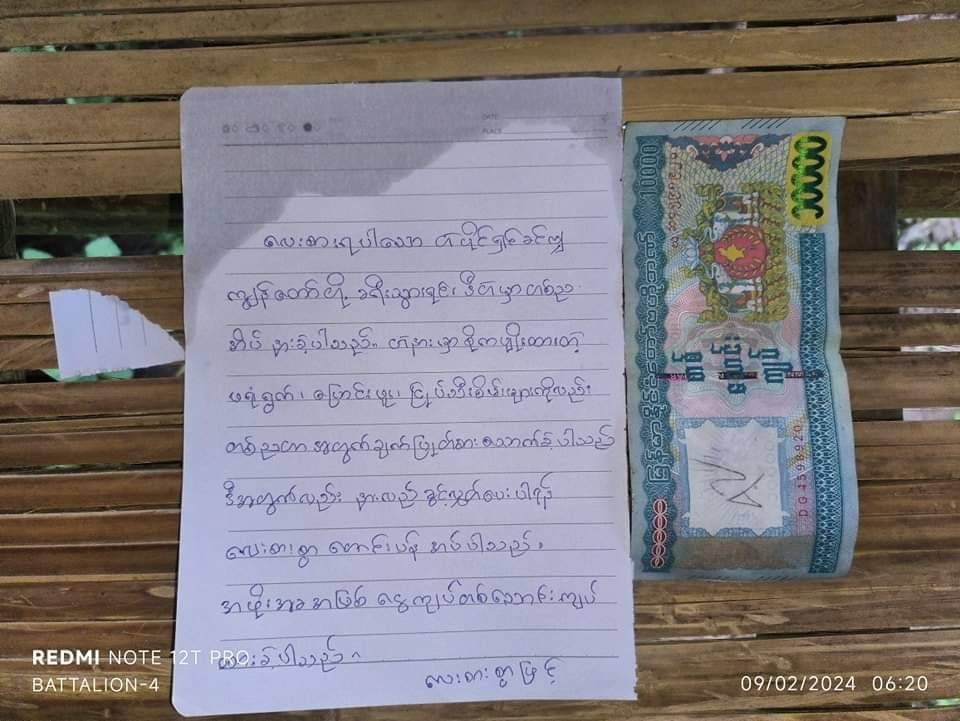 DATE
PLACE
လေးစားရပါသော တဲပိုင်ရှင်ခင်ဗျ
ကျွန်တော်တို့ ခရီးသွားရင်း ဒီတဲမှာ တစ်ည
အိပ် နားခဲ့ပါသည်။ တဲနားမှာ စိုက်ပျိုးထားတဲ့
ဖရုံရွက်၊ ပြောင်းဖူး၊ ငြုပ်သီးစိမ်းများကိုလည်း
တစ်ညတာ အတွက် ချက်ပြုတ်စားသောက်ခဲ့ပါသည်
ဒီအတွက်လည်း နားလည် ခွင့်လွှတ်ပေးပါရန်
လေးစားစွာ တောင်းပန် အပ်ပါသည်။
အဖိုးအခ အဖြစ် ငွေကျပ်တစ်သောင်းကျပ်
ထားခဲ့ပါသည်။
လေးစားစွာဖြင့်
မြန်မာနိုင်ငံတော်ဗဟိုဘဏ်
10000
၁၀၀၀၀
တစ်
သောင်း
ကျပ်
DG4598920
၁၀၀၀၀
REDMI NOTE 12T PRO
BATTALION-4
09/02/2024 06:20